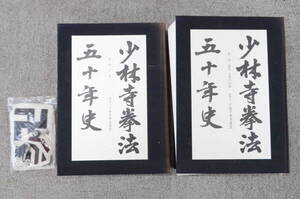 少林寺拳法
五十年史
少林寺拳法
五十年史